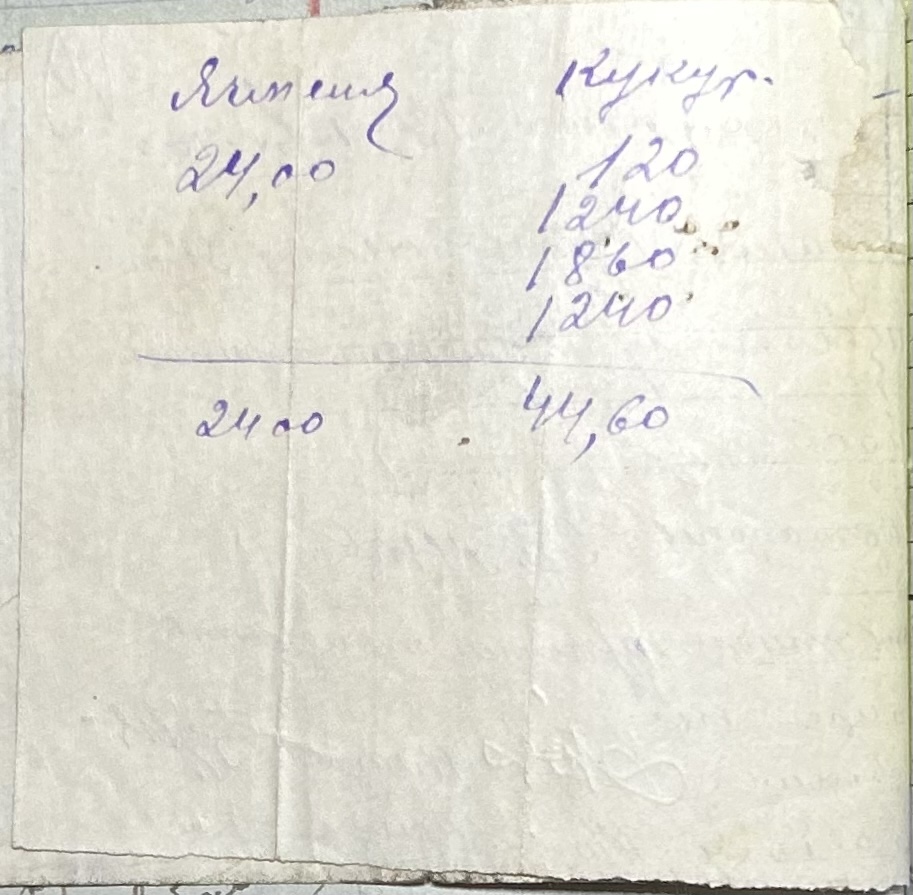 Ячменя Кукур.
24,00 120
1240
1860
1240
2400 44,60